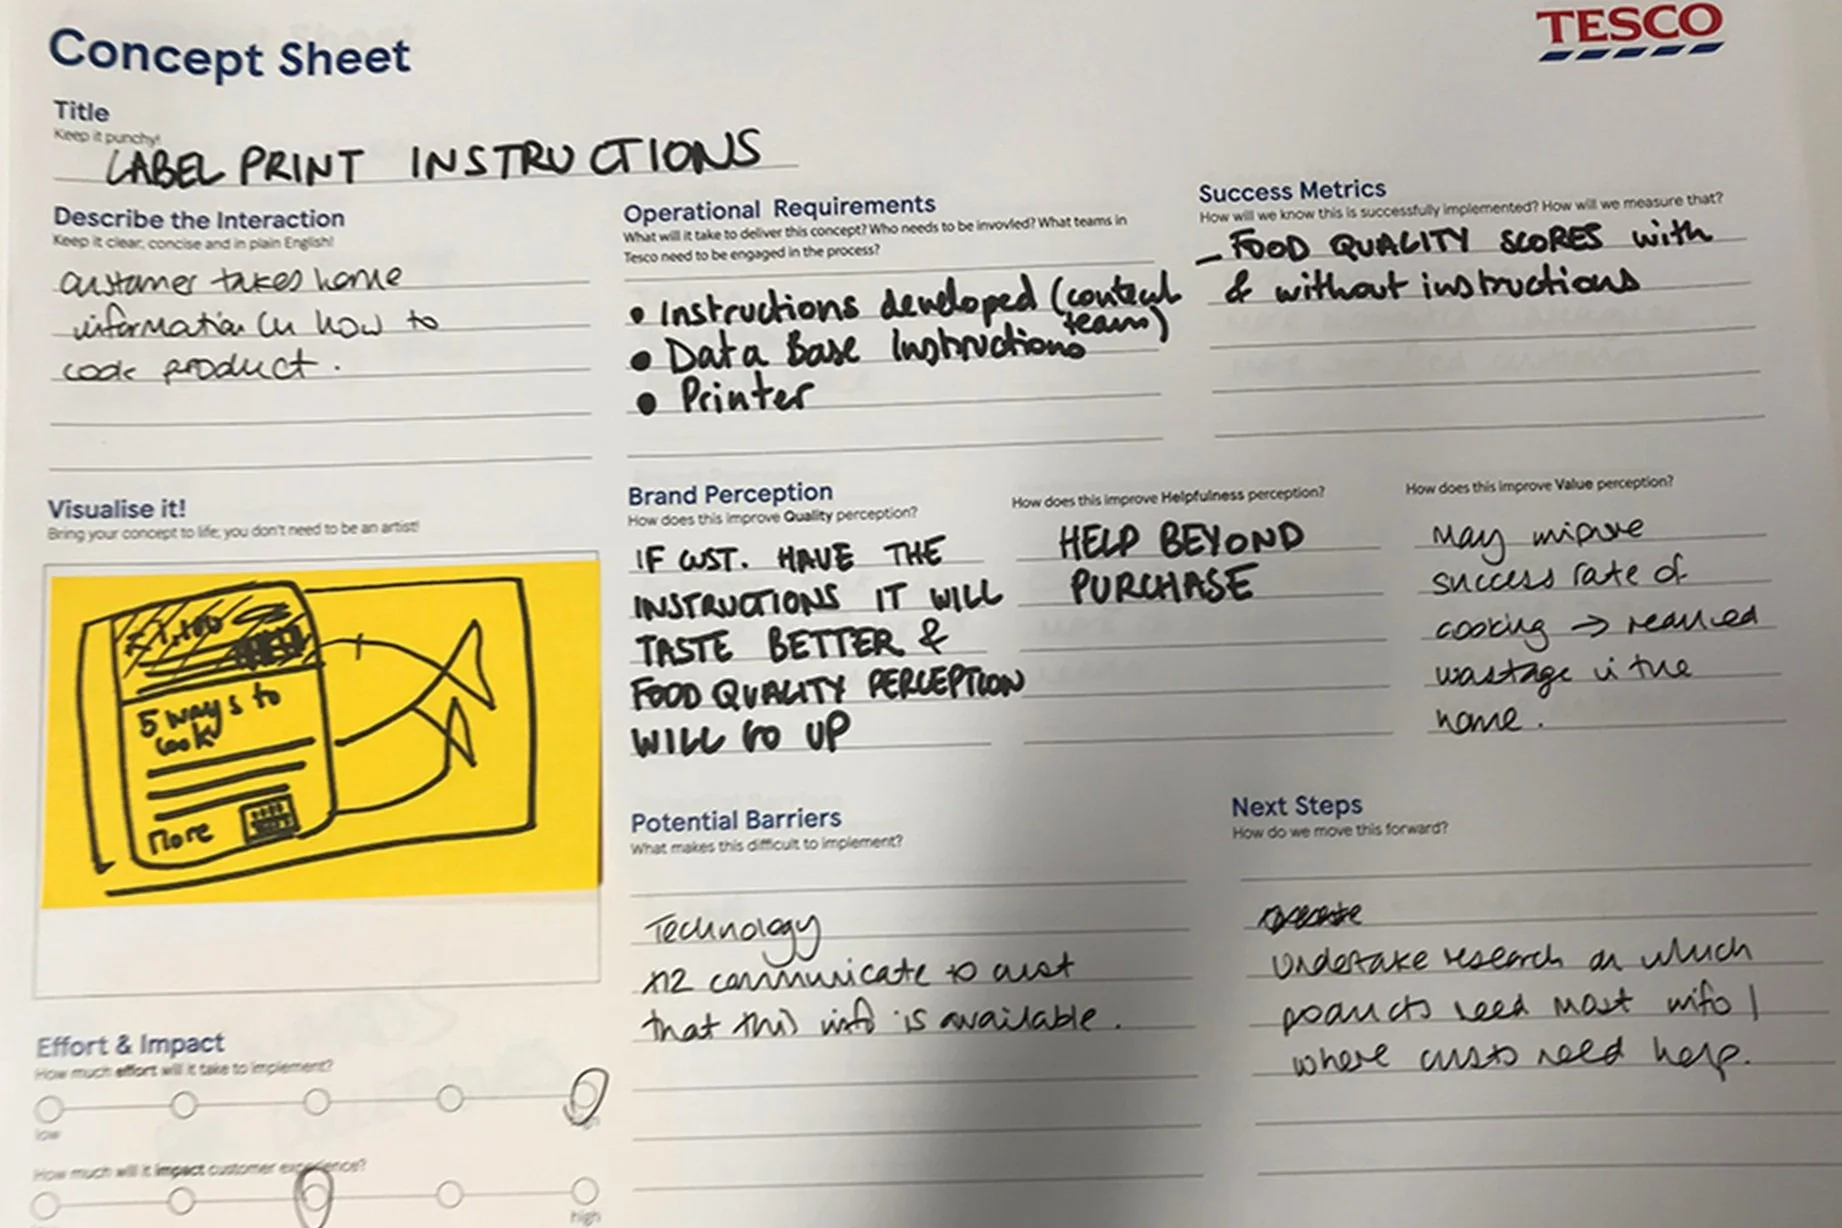 TESCO
Concept Sheet
Title
Keep it punchy!
LABEL PRINT INSTRUCTIONS
Describe the Interaction
Keep it clear, concise and in plain English!
customer takes home
information on how to
cook product.
Operational Requirements
What will it take to deliver this concept? Who needs to be invovled? What teams in
Tesco need to be engaged in the process?
• Instructions developed (content
team)
• Data Base Instructions
• Printer
Success Metrics
How will we know this is successfully implemented? How will we measure that?
- FOOD QUALITY SCORES with
& without instructions
Visualise it!
Bring your concept to life; you don't need to be an artist!
5 ways to
cook
More
Brand Perception
How does this improve Quality perception?
IF CUST. HAVE THE
INSTRUCTIONS IT WILL
TASTE BETTER &
FOOD QUALITY PERCEPTION
WILL GO UP
How does this improve Helpfulness perception?
HELP BEYOND
PURCHASE
How does this improve Value perception?
May improve
success rate of
cooking → reduced
wastage in the
home.
Effort & Impact
How much effort will it take to implement?
low
high
How much will it impact customer experience?
high
Potential Barriers
What makes this difficult to implement?
Technology
communicate to cust
that this info is available.
Next Steps
How do we move this forward?
Undertake research on which
products need most info /
where custs need help.